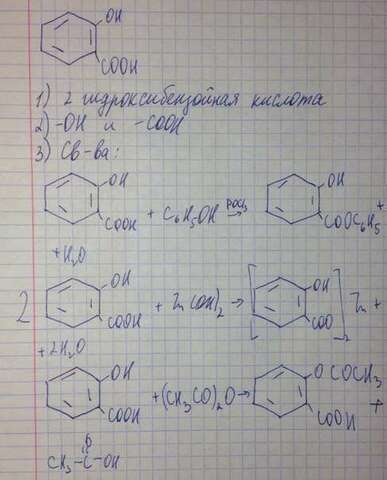 OH
COOH
1) 2 гидроксибензойная кислота
2) -OH и -COOH
3) Св-ва:
OH
COOH + C6H5OH POCl3→ OH
COOC6H5 +
+ H2O
2 OH
COOH + Zn(OH)2 → [ OH
COO ]2 Zn +
+ 2H2O
OH
COOH + (CH3CO)2O → OCOCH3
COOH +
O
CH3-C-OH